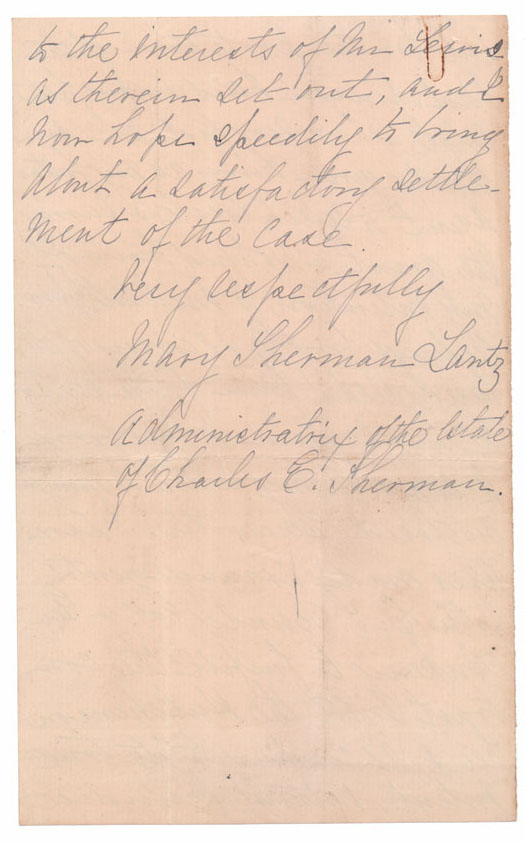 to the interests of Mr Lewis
as therein set out, and I
now hope speedily to bring
about a satisfactory settle-
ment of the case.
Very respectfully
Mary Sherman Lantz
Administratrix of the Estate
of Charles E. Sherman.